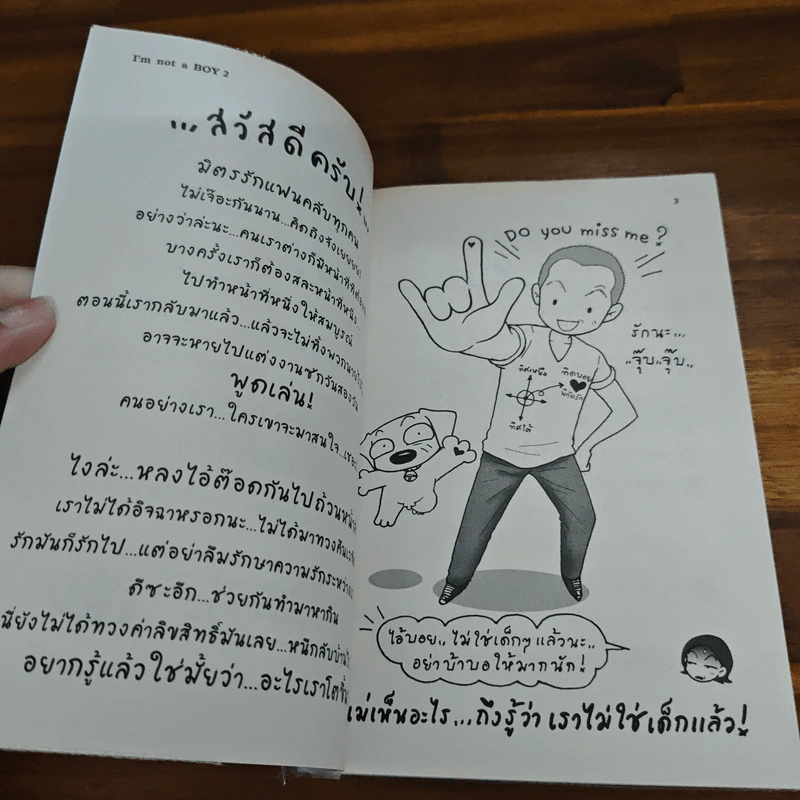 I'm not a BOY 2
...สวัสดีครับ!...
มิตรรักแฟนคลับทุกคน
ไม่เจ๊อะกันนาน...คิดถึงจังเยยยย!
อย่างว่าล่ะนะ...คนเราต่างก็มีหน้าที่
บางครั้งเราก็ต้องสละหน้าที่หนึ่ง...
ไปทำหน้าที่หนึ่งให้สมบูรณ์
ตอนนี้เรากลับมาแล้ว...แล้วจะไม่ทิ้ง
อาจจะหายไปแต่งงานซักวันสองวัน
พูดเล่น!
คนอย่างเรา...ใครเขาจะมาสนใจ...
ไงล่ะ...หลงไอ้ต๊อดกันไปถ้วน
เราไม่ได้อิจฉาหรอกนะ...ไม่ได้มาทวงคืน
รักมันก็รักไป...แต่อย่าลืมรักษาความรัก
ดีซะอีก...ช่วยกันทำมาหากิน
นี่ยังไม่ได้ทวงค่าลิขสิทธิ์มันเลย...หนีกลับ
อยากรู้แล้วใช่มั้ยว่า...อะไรเราโต
3
Do you miss me?
รักนะ...
..จุ๊บ..จุ๊บ..
ทิศเหนือ
ทิศบอย
พิกัดรัก
ทิศใต้
ไอ้บอย.. ไม่ใช่เด็กๆ แล้วนะ..
อย่าบ้าบอให้มากนัก!
เห็นอะไร...ถึงรู้ว่า เราไม่ใช่เด็กแล้ว!